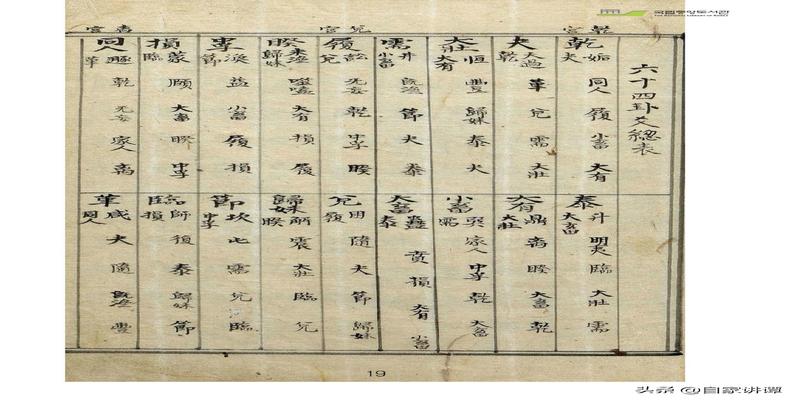 국립중앙도서관
THE NATIONAL LIBRARY OF KOREA
乾宮
兌宮
六十四卦爻總表
乾 姤 同人 履 小畜 大有 夬
夬 大過 革 兌 需 大壯 乾
大壯 恒 豐 歸妹 泰 夬 大有
需 井 既濟 節 夬 泰 小畜
履 訟 无妄 乾 中孚 睽 兌
睽 未濟 噬嗑 大有 損 履 歸妹
中孚 渙 益 小畜 履 損 節
損 蒙 頤 大畜 睽 中孚 臨
同人 遯 乾 无妄 家人 离 革
泰 升 明夷 臨 大壯 需 大畜
大有 鼎 离 睽 大畜 乾 大壯
小畜 巽 家人 中孚 乾 大畜 需
大畜 蠱 賁 損 大有 小畜 泰
兌 困 隨 夬 節 歸妹 履
歸妹 解 震 大壯 臨 兌 睽
節 坎 屯 需 兌 臨 中孚
臨 師 復 泰 歸妹 節 損
革 咸 夬 隨 既濟 豐 同人
19
头条 @自家讲谭